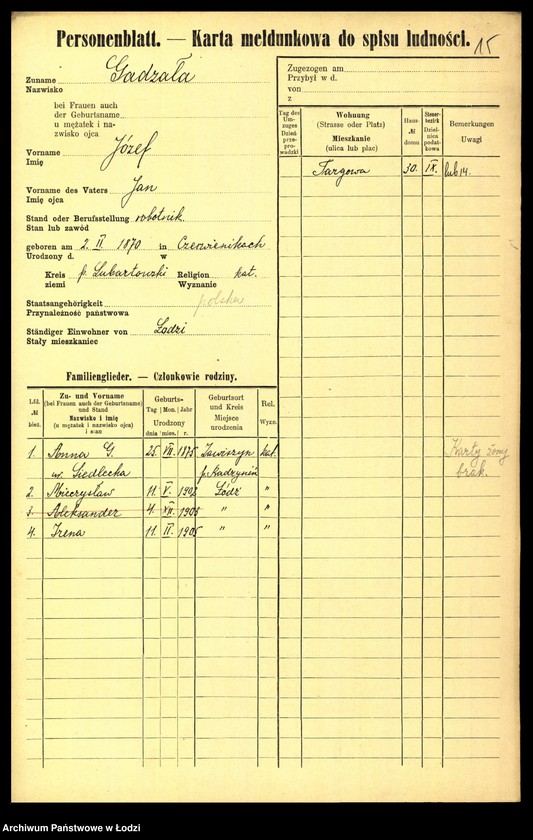 Personenblatt. — Karta meldunkowa do spisu ludności.
15
Zuname Gadzała
Nazwisko
bei Frauen auch
der Geburtsname
u mężatek i na-
zwisko ojca
Vorname Józef
Imię
Vorname des Vaters Jan
Imię ojca
Stand oder Berufsstellung robotnik.
Stan lub zawód
geboren am 2. II. 1870 in Czerwienikach
Urodzony d. w
Kreis p. Lubartowski Religion kat.
ziemi Wyznanie
Staatsangehörigkeit polska
Przynależność państwowa
Ständiger Einwohner von Łodzi
Stały mieszkaniec
Zugezogen am
Przybył w d.
von
z
Tag des Um-zuges Dzień prze-prowadzki
Wohnung (Strasse oder Platz) Mieszkanie (ulica lub plac)
Haus- № domu
Steuer-bezirk Dziel-nica podat-kowa
Bemerkungen Uwagi
Targowa 30. IX. lub 14.
Karty żony
brak.
Familienglieder. — Członkowie rodziny.
Lfd. № bież.
Zu- und Vorname (bei Frauen auch der Geburtsname) und Stand Nazwisko i imię (u mężatek i nazwisko ojca) i stan
Geburts- Tag Mon. Jahr Urodzony dnia mies. r.
Geburtsort und Kreis Miejsce urodzenia
Rel. Wyzn.
1. Anna G. 25. VII. 1875 kat.
w. Siedlecka
2. Mieczysław 11. V. Łódź "
3. Aleksander 4. XII. 1903 " "
4. Irena 11. II. 1905 " "
Archiwum Państwowe w Łodzi